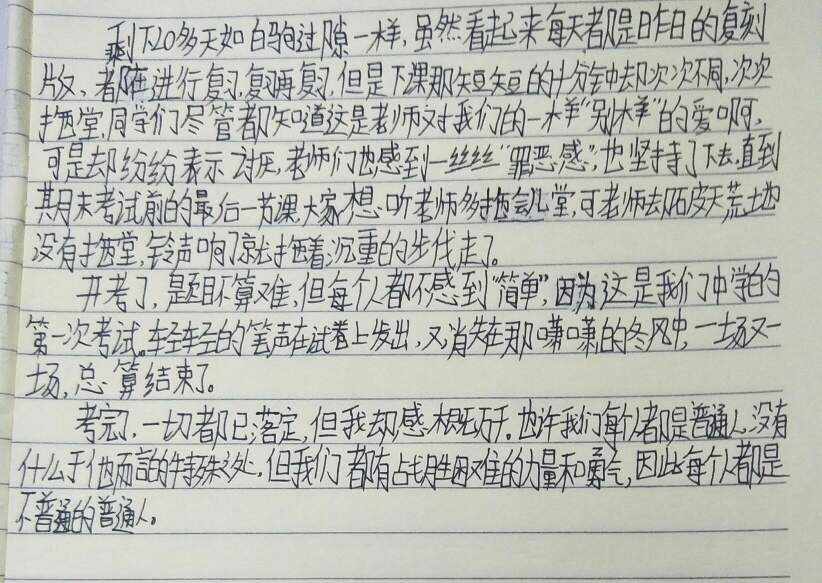 剩下20多天如白驹过隙一样,虽然看起来每天都是昨日的复刻
版、都在进行复习,复习再复习,但是下课那短短的十分钟却次次不同,次次
拖堂,同学们尽管都知道这是老师对我们的一样“别样”的爱啊,
可是却纷纷表示讨厌,老师们也感到一丝丝“罪恶感”,也坚持了下去,直到
期末考试前的最后一节课,大家想听老师多拖会儿堂,可老师却破天荒土地
没有拖堂,铃声响了就拖着沉重的步伐走了。
开考了,题目不算难,但每个人都不感到“简单”,因为这是我们中学的
第一次考试。轻轻的笔声在试卷上发出,又消失在那啸啸的冬风中,一场又一
场,总算结束了。
考完了,一切都已落定,但我却感概万千。也许我们每个人都是普通人,没有
什么于他而言的特殊之处,但我们都有战胜困难的力量和勇气,因此每个人都是
不普通的普通人。